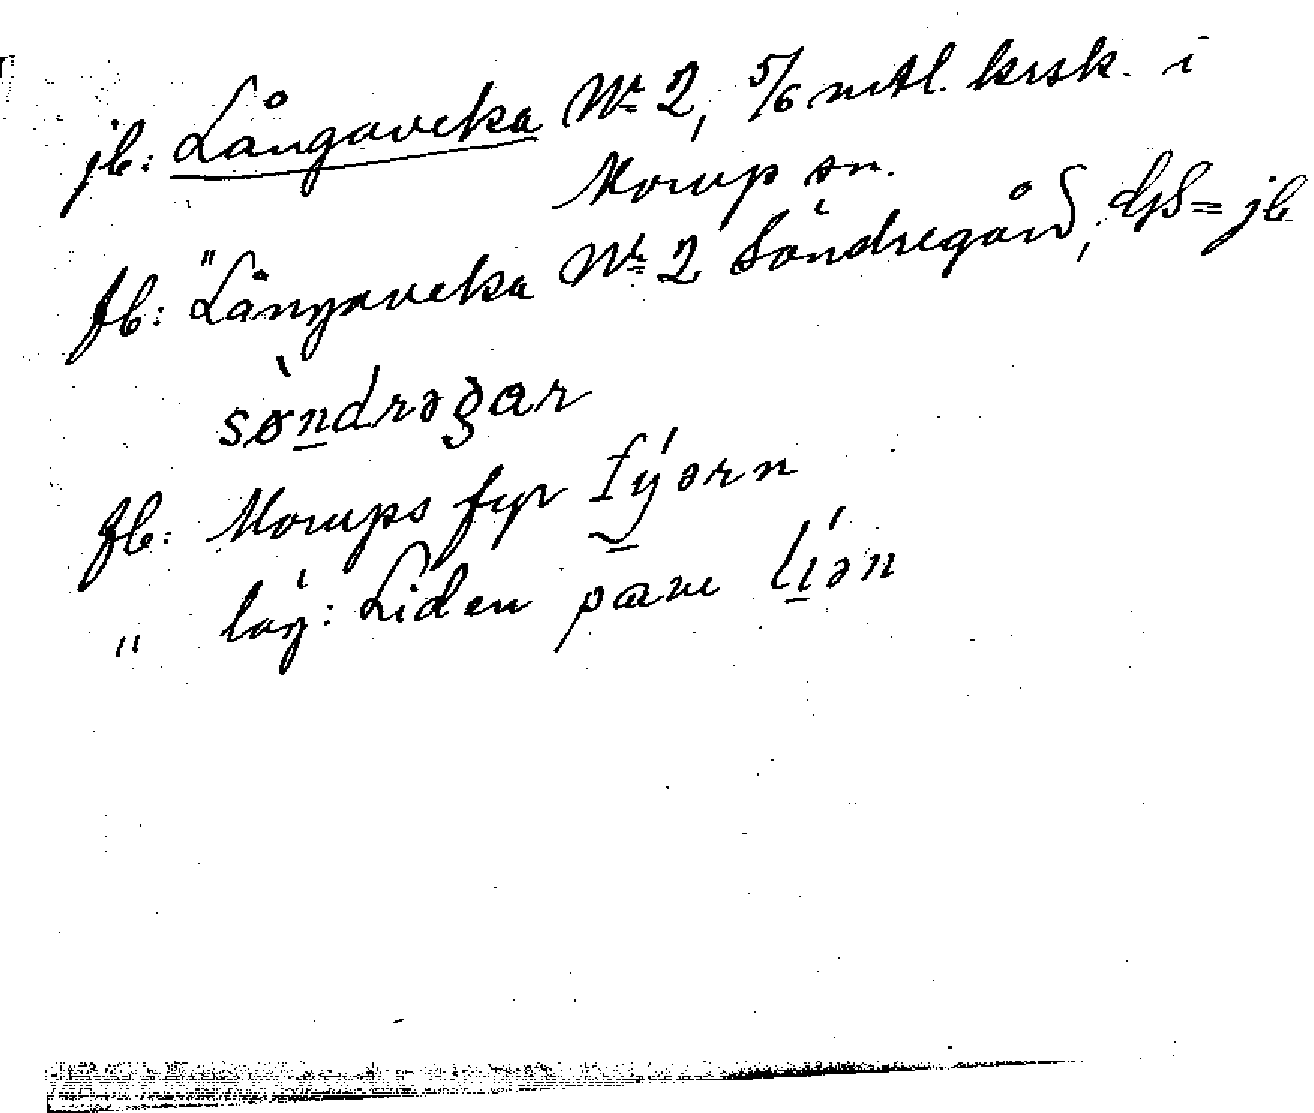 jb: Långaveka Nr 2, 5/6 mtl. krsk. i
Morup sn.
fb: "Långaveka Nr 2 Söndregård, = jb
sø̀ndrəgar
fb: Morups fyr fýərn
" läg: Liden pæne líən